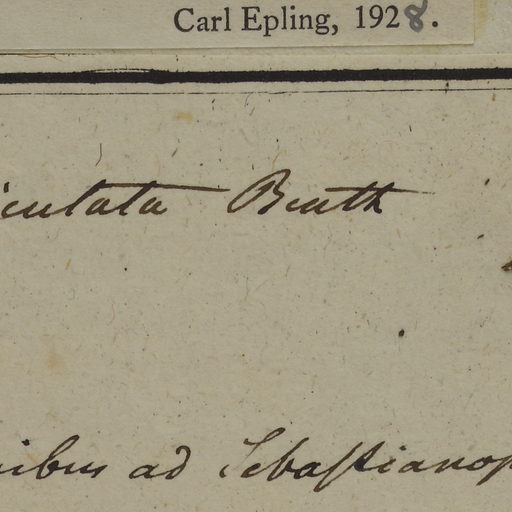 Carl Epling, 1928.
iculata Benth
nibus ad Sebastianop